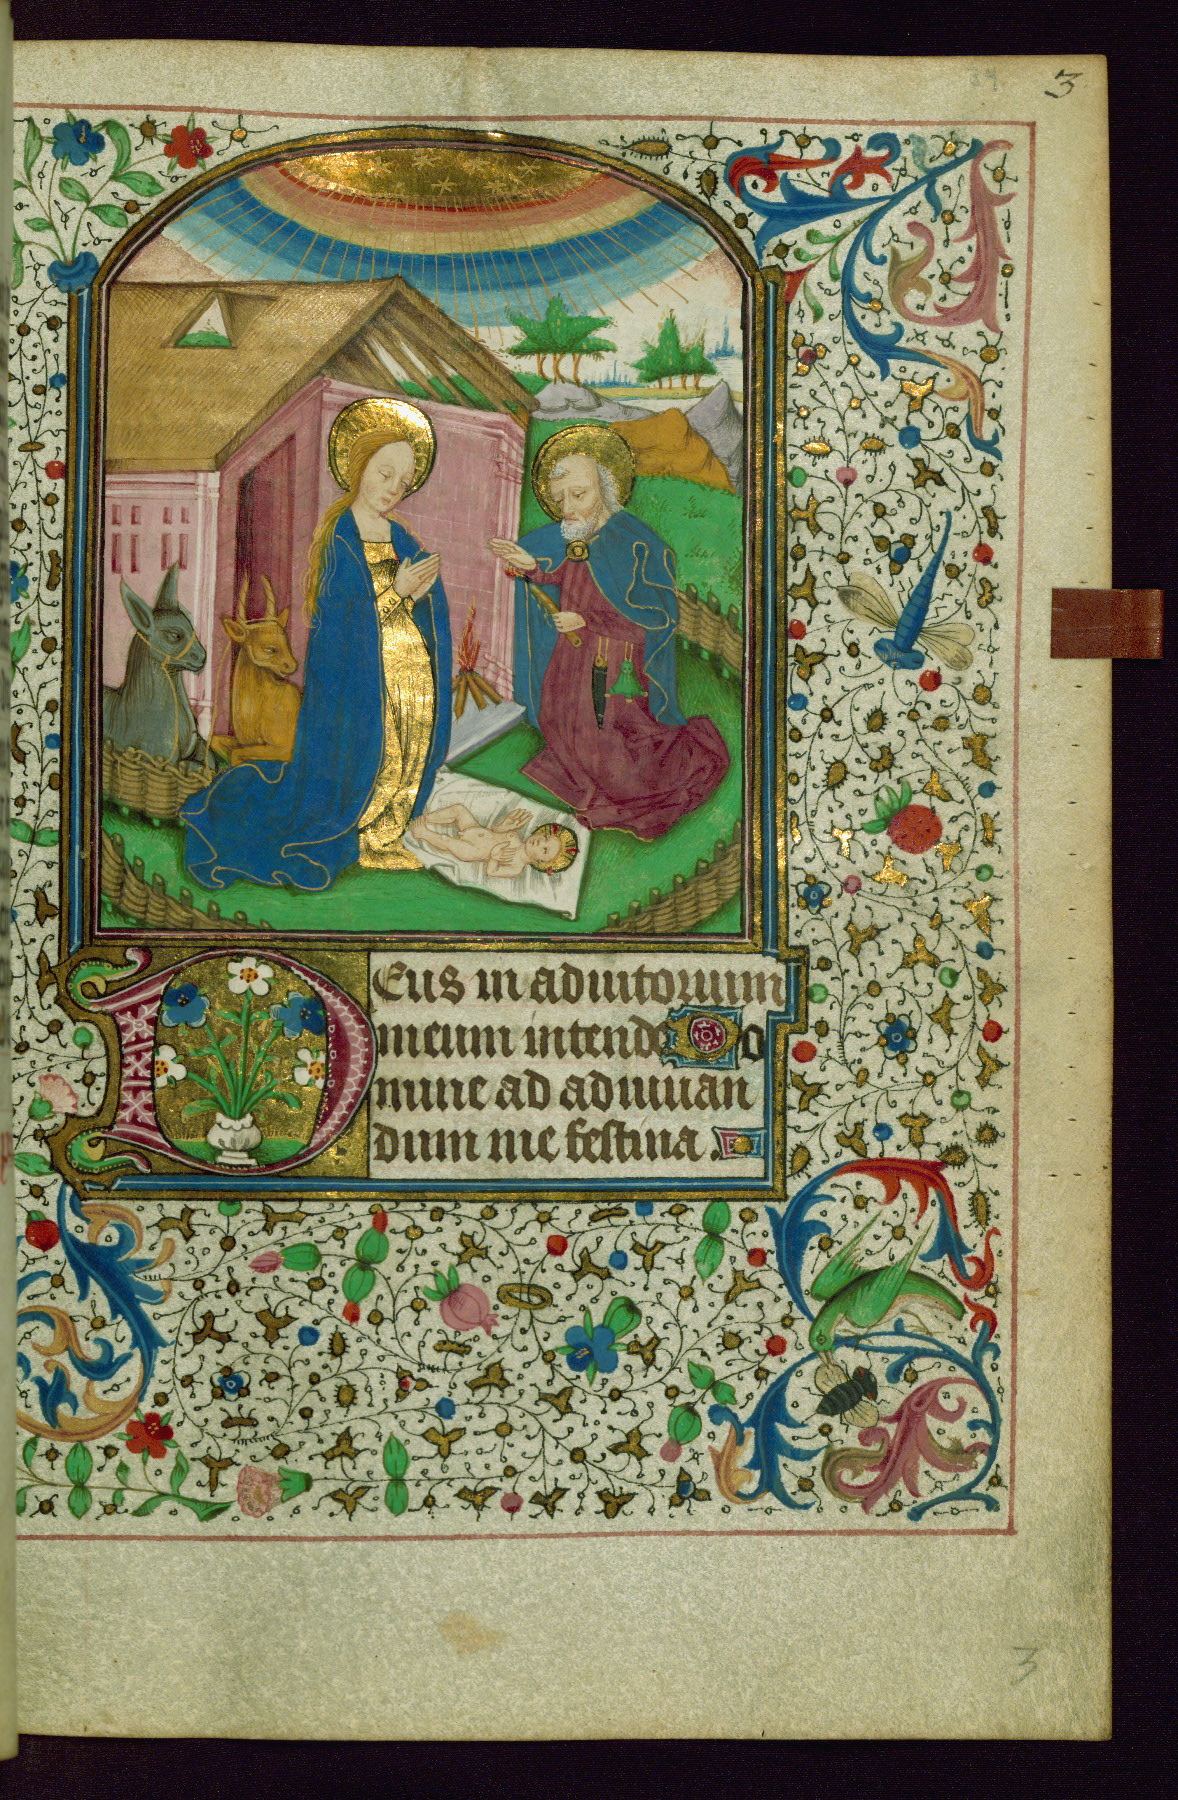 3
Deus in adiutorium
meum intende do
mine ad adiuuan
dum me festina.
3